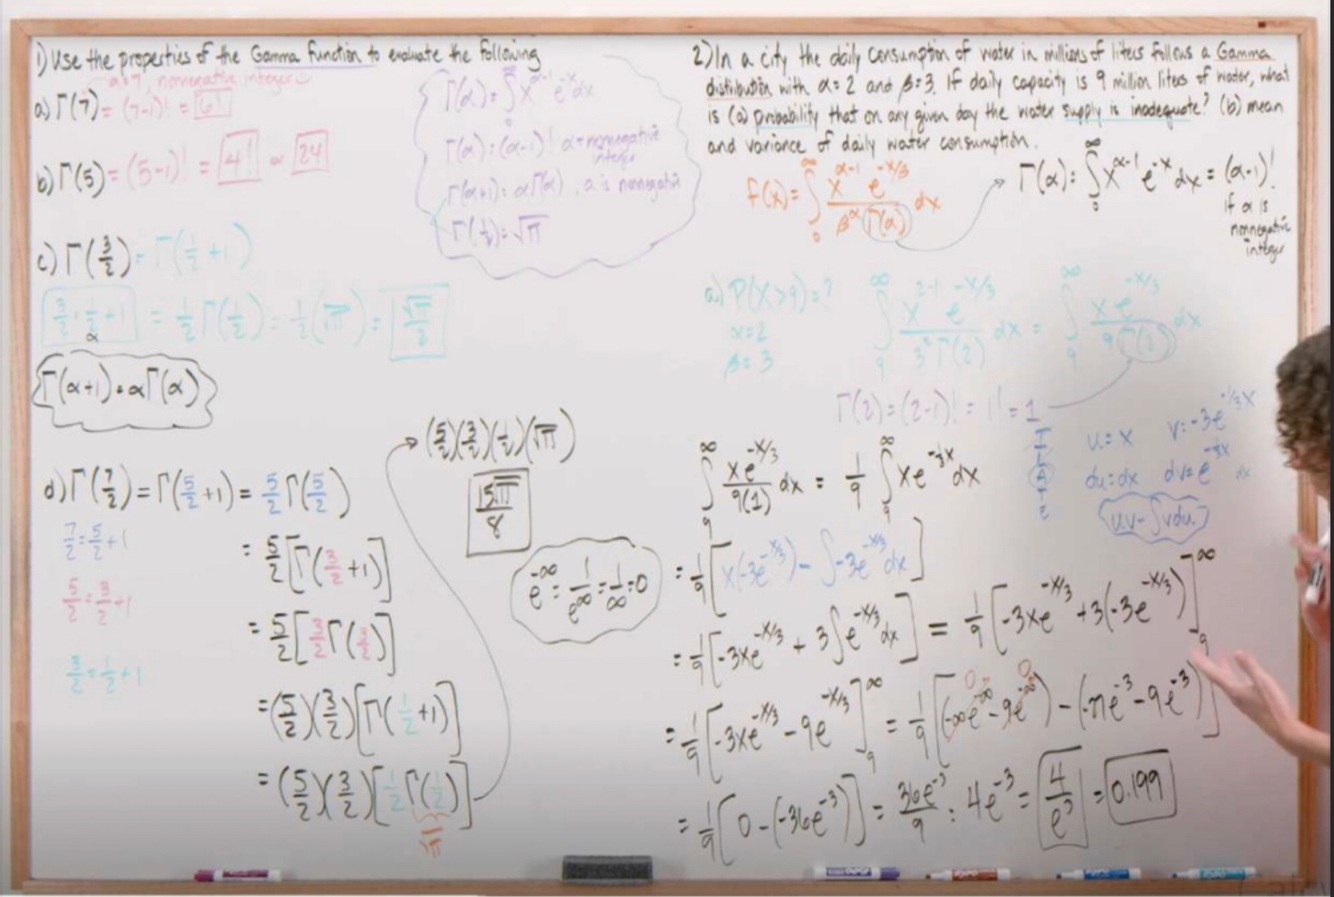 1) Use the properties of the Gamma function to evaluate the following
α=7, nonnegative integer
a) Γ(7) = (7-1)! = 6!
b) Γ(5) = (5-1)! = 4! or 24
Γ(α) = ∫₀^∞ x^(α-1) e^(-x) dx
Γ(α) = (α-1)! α = nonnegative
integer
Γ(α+1) = αΓ(α), α is nonnegative
Γ(1/2) = √π
c) Γ(3/2) = Γ(1/2 + 1)
3/2 = 1/2 + 1 = 1/2 Γ(1/2) = 1/2 (√π) = √π/2
α
Γ(α+1) = αΓ(α)
d) Γ(7/2) = Γ(5/2 + 1) = 5/2 Γ(5/2)
7/2 = 5/2 + 1
= 5/2 [Γ(3/2 + 1)]
5/2 = 3/2 + 1
= 5/2 [3/2 Γ(3/2)]
3/2 = 1/2 + 1
= (5/2)(3/2)[Γ(1/2 + 1)]
= (5/2)(3/2)[1/2 Γ(1/2)]
√π
→ (5/2)(3/2)(1/2)(√π)
15√π/8
e^(-∞) = 1/e^∞ = 1/∞ = 0
2) In a city the daily consumption of water in millions of liters follows a Gamma
distribution with α = 2 and β = 3. If daily capacity is 9 million liters of water, what
is (a) probability that on any given day the water supply is inadequate? (b) mean
and variance of daily water consumption.
f(x) = ∫₀^∞ x^(α-1) e^(-x/β) / (β^α Γ(α)) dx
→ Γ(α) = ∫₀^∞ x^(α-1) e^(-x) dx = (α-1)!
if α is
nonnegative
integer
a) P(X>9) = ?
α = 2
β = 3
∫₉^∞ x^(2-1) e^(-x/3) / (3² Γ(2)) dx = ∫₉^∞ x e^(-x/3) / (9 Γ(2)) dx
Γ(2) = (2-1)! = 1! = 1
I
L
A
T
E
u = x v = -3e^(-1/3x)
du = dx dv = e^(-1/3x) dx
uv - ∫vdu
∫₉^∞ xe^(-x/3) / 9(1) dx = 1/9 ∫₉^∞ xe^(-1/3x) dx
= 1/9 [x(-3e^(-x/3)) - ∫-3e^(-x/3) dx]
= 1/9 [-3xe^(-x/3) + 3∫e^(-x/3) dx] = 1/9 [-3xe^(-x/3) + 3(-3e^(-x/3))]₉^∞
= 1/9 [-3xe^(-x/3) - 9e^(-x/3)]₉^∞ = 1/9 [(-∞e^(-∞) - 9e^(-∞)) - (-27e^(-3) - 9e^(-3))]
0 0
= 1/9 [0 - (-36e^(-3))] = 36e^(-3)/9 = 4e^(-3) = 4/e³ = 0.199